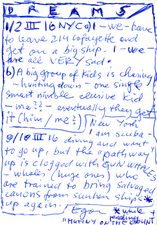 DREAMS
1/2 III 16 NYC 91 - we - have
to leave 214 Lafayette and
get on a big ship - I - we -
are all VERY sad.
6) A big group of kids is chasing
- hunting down - one single
smart nimble elusive kid
- me?? - eventually they get
it (him/me?)
New York,
9/10 III 16 I am scuba -
diving and want
to go up, but the "pathway"
up is clogged with GRAY WHALES
- whales (huge ones) who
are trained to bring salvaged
canons from sunken ships
up again.
Egon
* while
reading
"MUTINY ON THE BOUNTY"